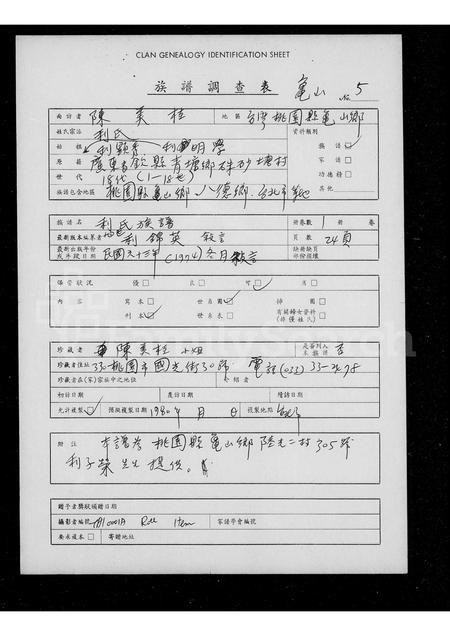 CLAN GENEALOGY IDENTIFICATION SHEET
族譜調查表 龜山 No. 5
面訪者 陳美桂 地區 台灣桃園縣龜山鄉
姓氏宗派 利氏 資料類別
始祖 利 族譜
原籍 廣東省欽縣青塘鄉硃砂塘村 家譜
世代 18代 (1—18世) 功德榜
族譜包含地區 桃園縣龜山鄉、八德鄉、台北市 其他
族譜名 利氏族譜 冊卷數 1 冊 卷
最新版本編著者 利錦英 敘言 頁數 24頁
最新出版年份或手段日期 民國六十三年 (1974) 冬月敘言 缺冊缺頁部份損壞
保管狀況 優 良 可 劣
內容 寫本 世系圖 掃圖 有關婦女資料(非僅姓氏)
刊本 世系表
珍藏者 陳美桂 小姐 是否列入本族譜 否
珍藏者住址 330桃園市國光街30號 電話(033) 33-2698
珍藏者在(家)宗族中之地位 介紹者
初訪日期 覆訪日期 續訪日期
允許複製 預擬複製日期 1980年 月 日 複製地點
附註 本譜為桃園縣龜山鄉陸光二村305號
利子榮先生提供。
贈予者獎狀頒贈日期
攝影者編號 Roll Item 家譜學會編號
要永遠本 寄贈地址